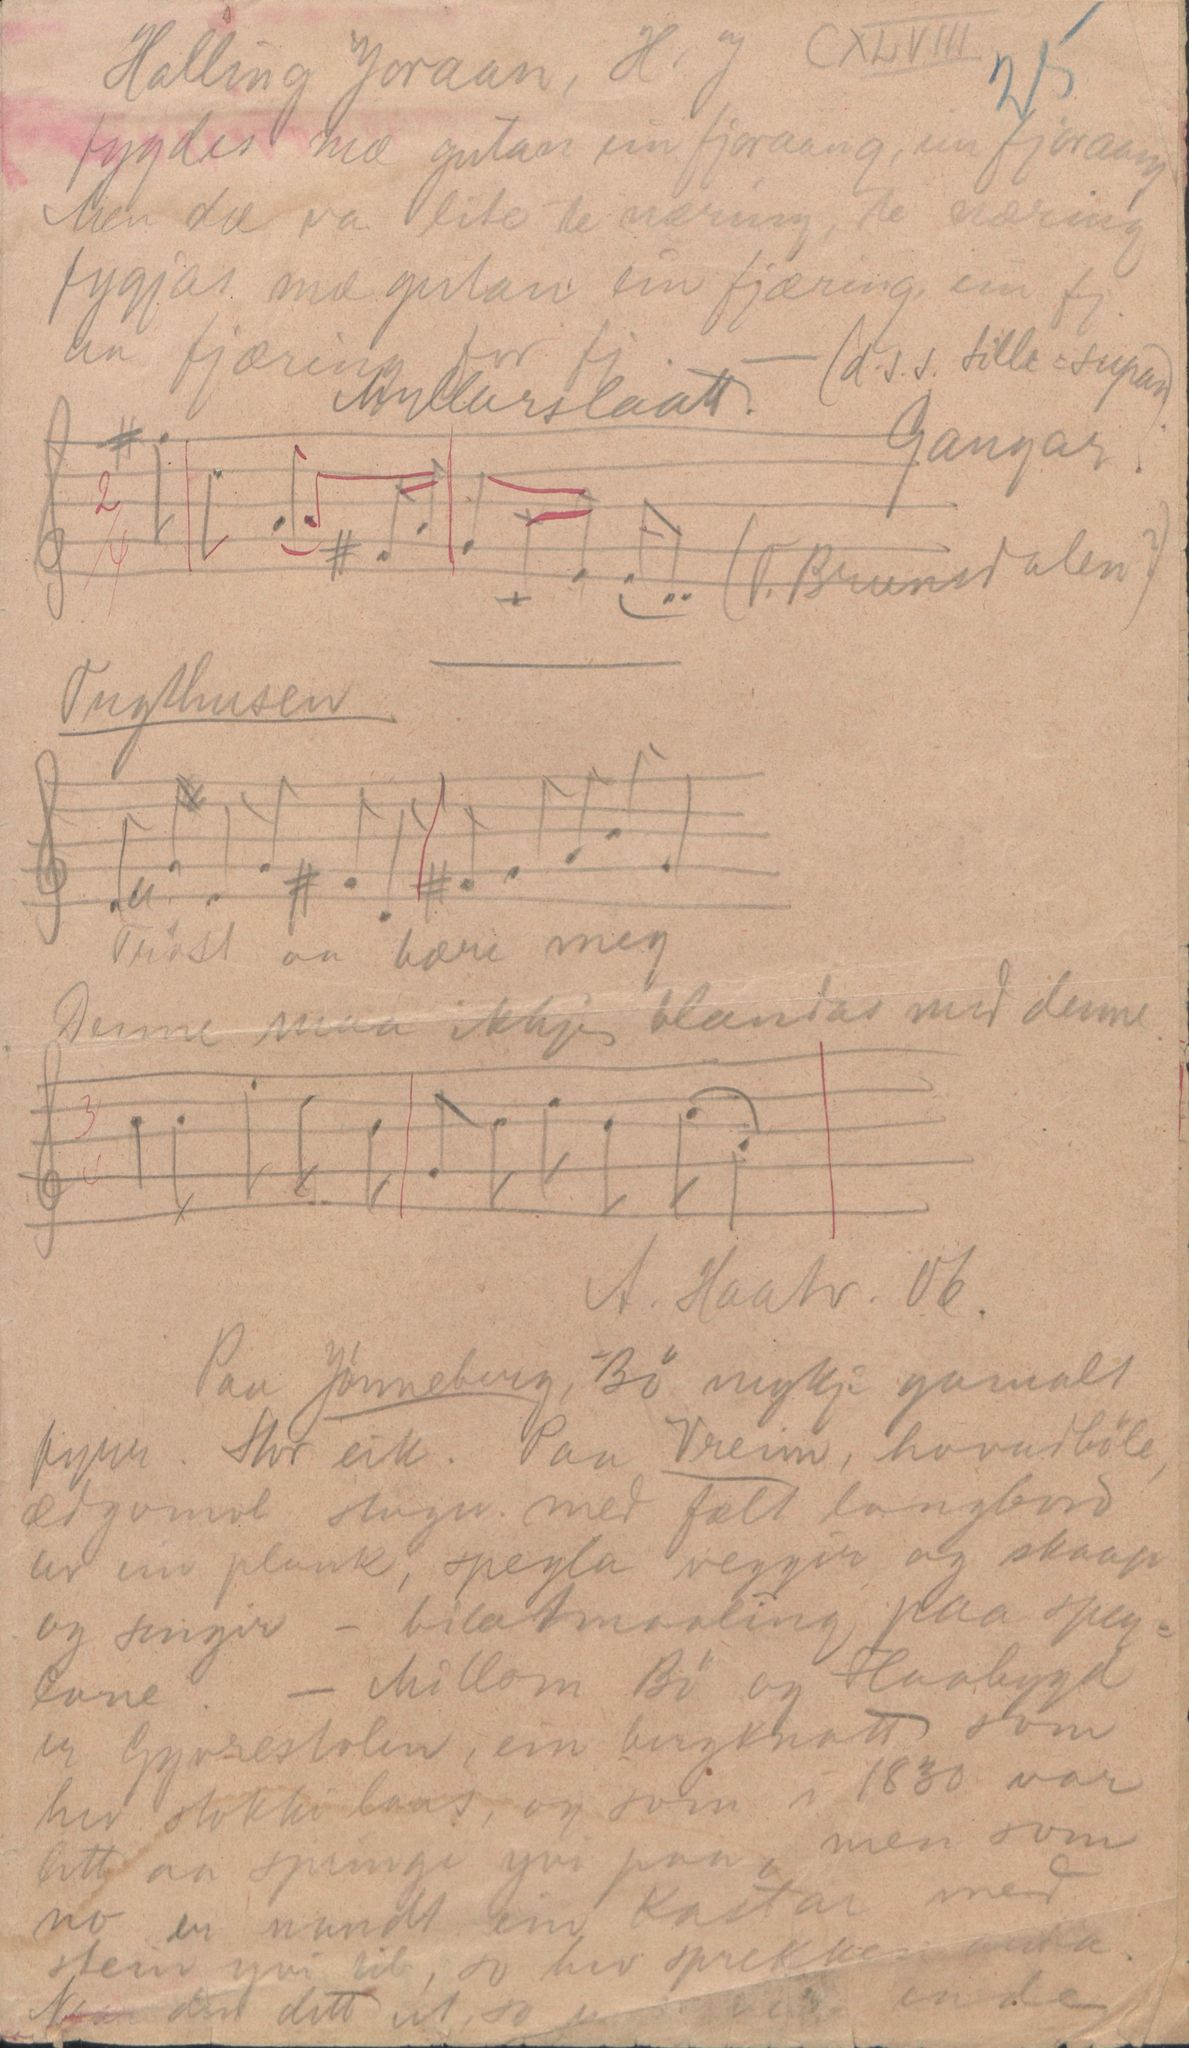 Halling Joraan, H. og CXLVIII 25
fygdes mæ gutan ein fjoraang, ein fjoraang
Men dæ va lite te næring, te næring
fygjas mæ gutan ein fjæring, ein fj.
aa fjæring for fj. — (d.s.s. sille=supan)
Myllarslaatt.
Gangar.
2/4
(T. Brunsdalen?)
Tugthusen
Tröst aa bære meg
Denne maa ikkje blandas med denne
3
A. Haatv. 06.
Paa Jönneberg, Bö mykje gamalt
fyrr. Stor eik. Paa Vreim, hovudböle,
ældgomol stogu med fælt langbord
av ein plank, spegla veggir og skaap
og sengir – bilætmaaling paa speg=
larne. — Millom Bö og Flaabygd
er Gyvrestolen, ein bergknatt som
hev slokke laas, og som i 1830 var
lett aa springe yvi paa, men som
no er nundt ein kastar med
stein yvi til, so hev sprekken
den dett ut, so ende